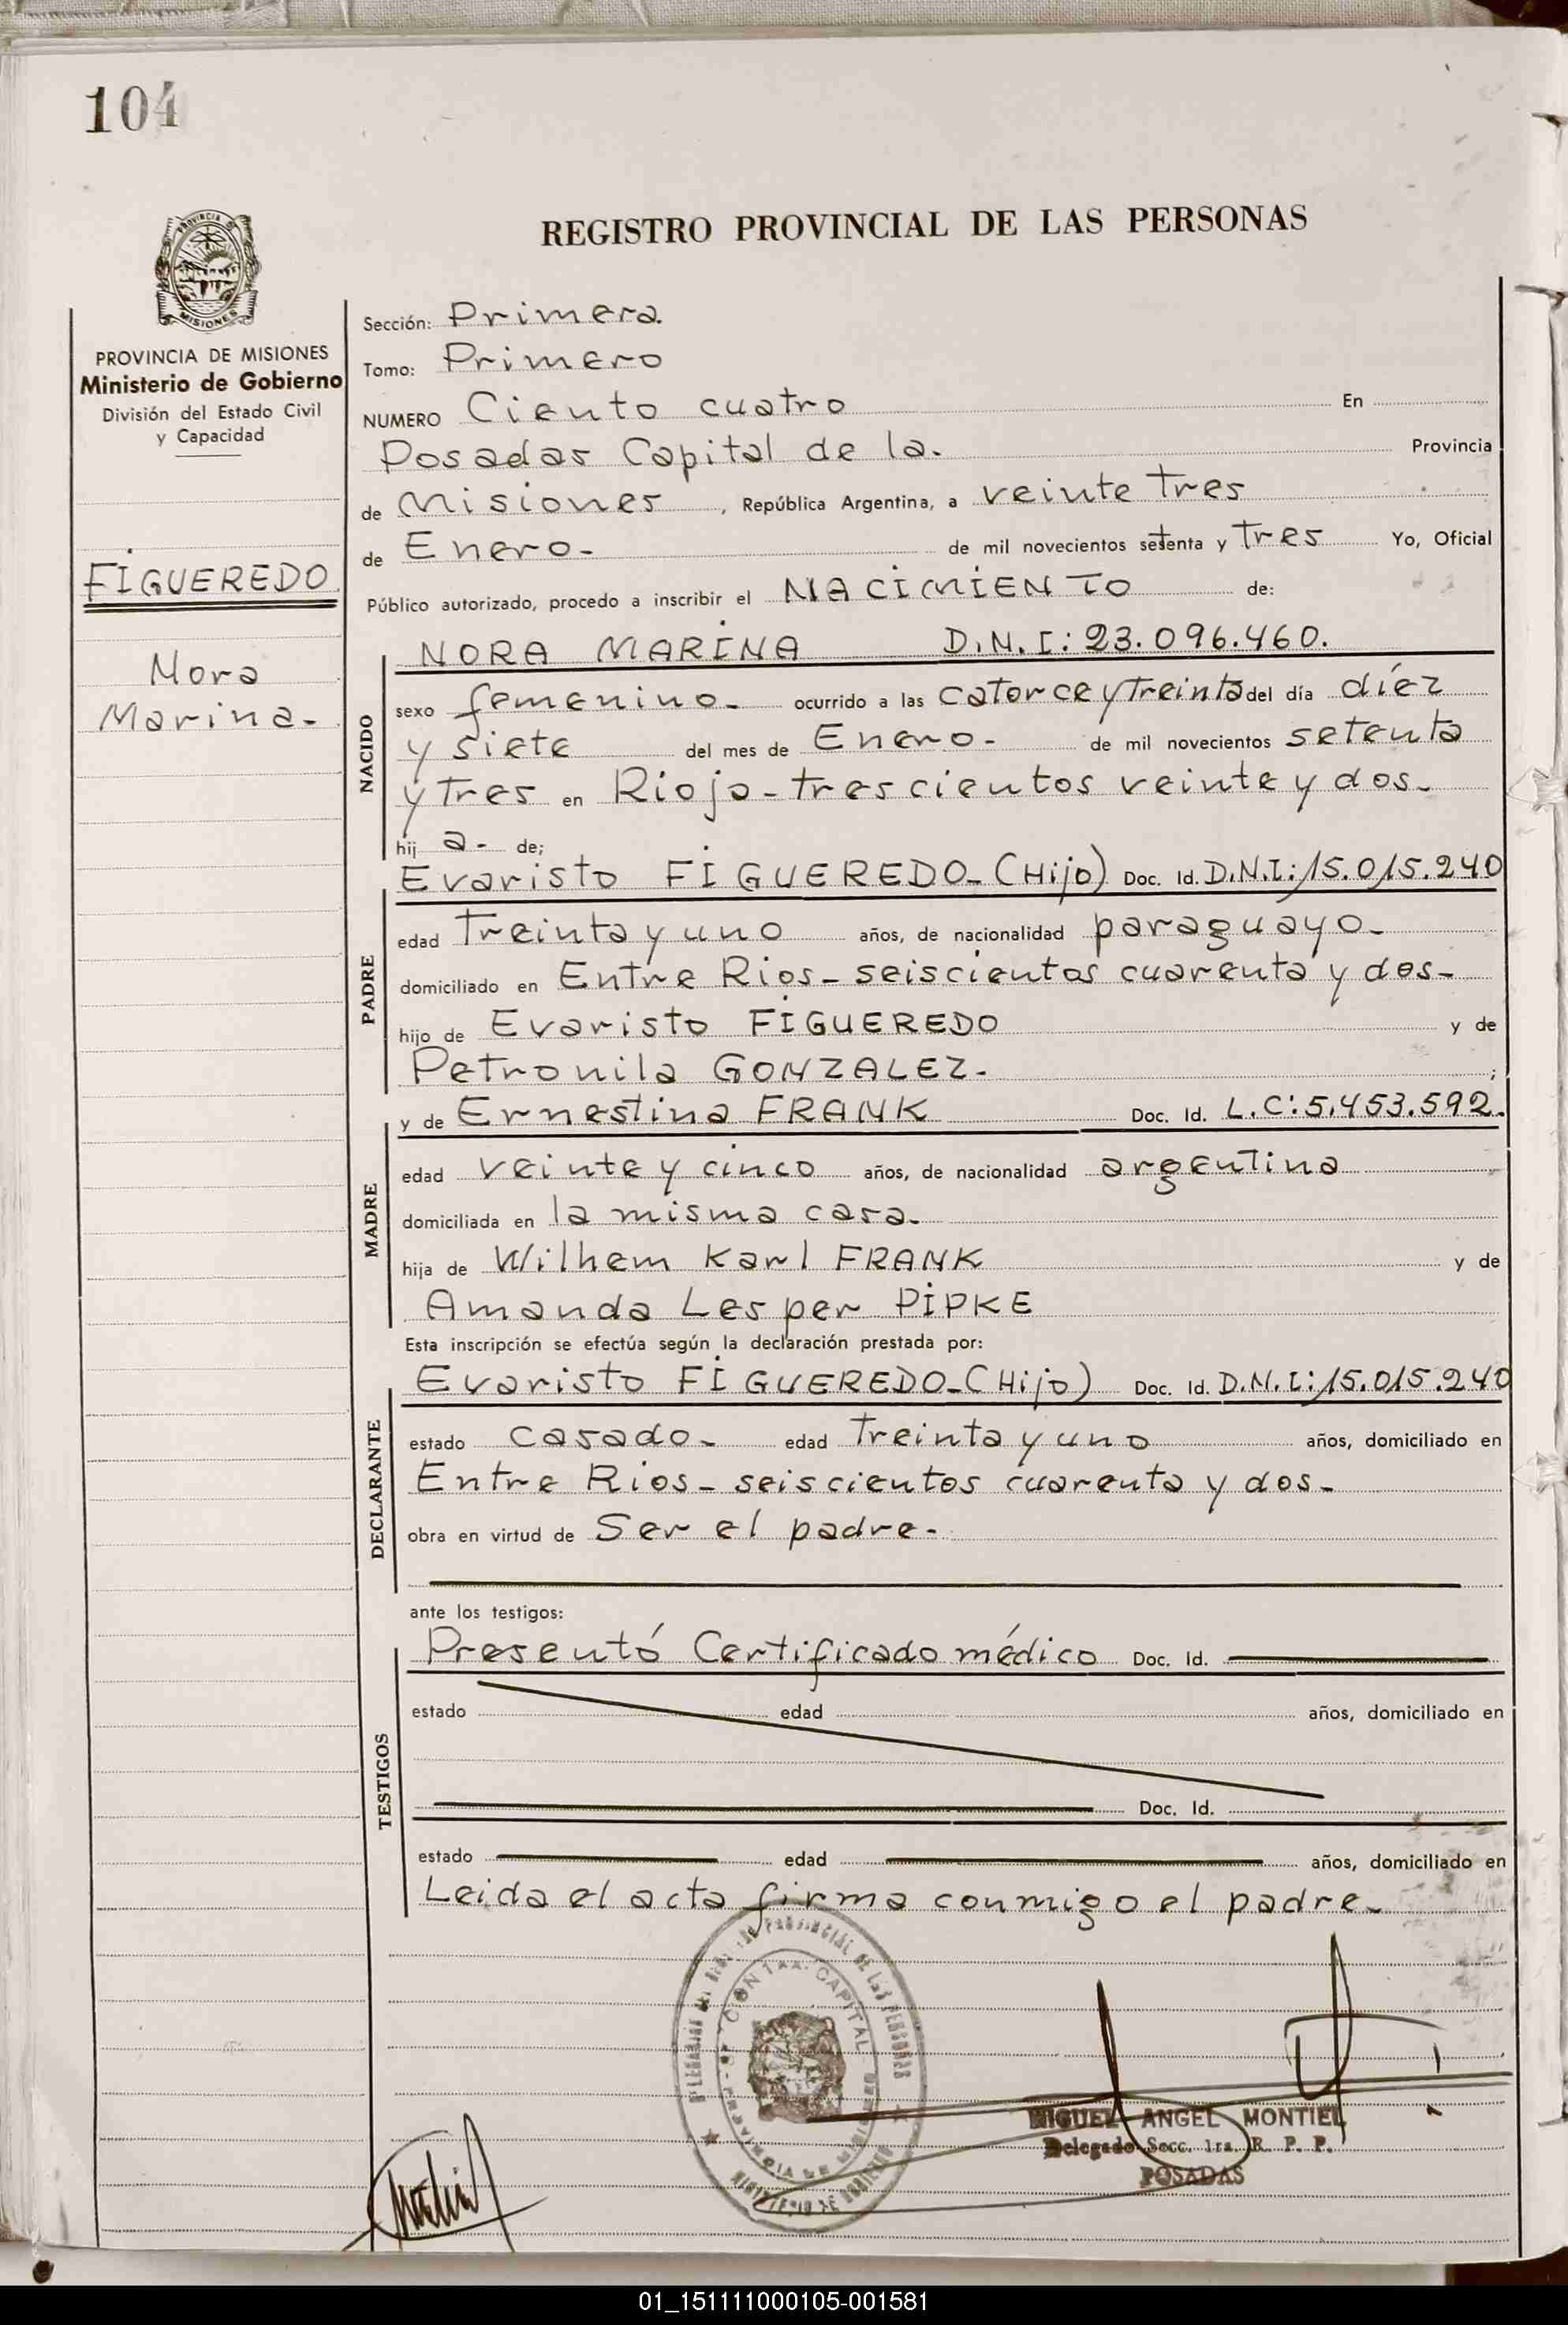 104
PROVINCIA
MISIONES
PROVINCIA DE MISIONES
Ministerio de Gobierno
División del Estado Civil
y Capacidad
FIGUEREDO
Nora
Marina-
REGISTRO PROVINCIAL DE LAS PERSONAS
Sección: Primera
Tomo: Primero
NUMERO Ciento cuatro En
Posadas Capital de la. Provincia
de Misiones, República Argentina, a veinte tres
de Enero- de mil novecientos setenta y Tres Yo, Oficial
Público autorizado, procedo a inscribir el NACIMIENTO de:
NACIDO
NORA MARINA D.N.I: 23.096.460.
sexo femenino- ocurrido a las catorce y Treinta del día díez
y siete del mes de Enero- de mil novecientos setenta
y Tres en Rioja-trescientos veinte y dos-
hij a- de;
PADRE
Evaristo FIGUEREDO-(Hijo) Doc. Id. D.N.I:15.015.240
edad Treinta y uno años, de nacionalidad paraguayo-
domiciliado en Entre Rios-seiscientos cuarenta y dos-
hijo de Evaristo FIGUEREDO y de
Petronila GONZALEZ- ;
MADRE
y de Ernestina FRANK Doc. Id. L.C:5.453.592.
edad veinte y cinco años, de nacionalidad argentina
domiciliada en la misma casa-
hija de Wilhem Karl FRANK y de
Amanda Lesper PIPKE
Esta inscripción se efectúa según la declaración prestada por:
DECLARANTE
Evaristo FIGUEREDO-(Hijo) Doc. Id. D.N.I:15.015.240
estado casado- edad Treinta y uno años, domiciliado en
Entre Rios-seiscientos cuarenta y dos-
obra en virtud de Ser el padre-
ante los testigos:
TESTIGOS
Presentó Certificado médico Doc. Id.
estado edad años, domiciliado en
Doc. Id.
estado edad años, domiciliado en
Leida el acta firma conmigo el padre-
MIGUEL ANGEL MONTIEL
Delegado Secc. 1ra. R. P. P.
POSADAS
01_151111000105-001581